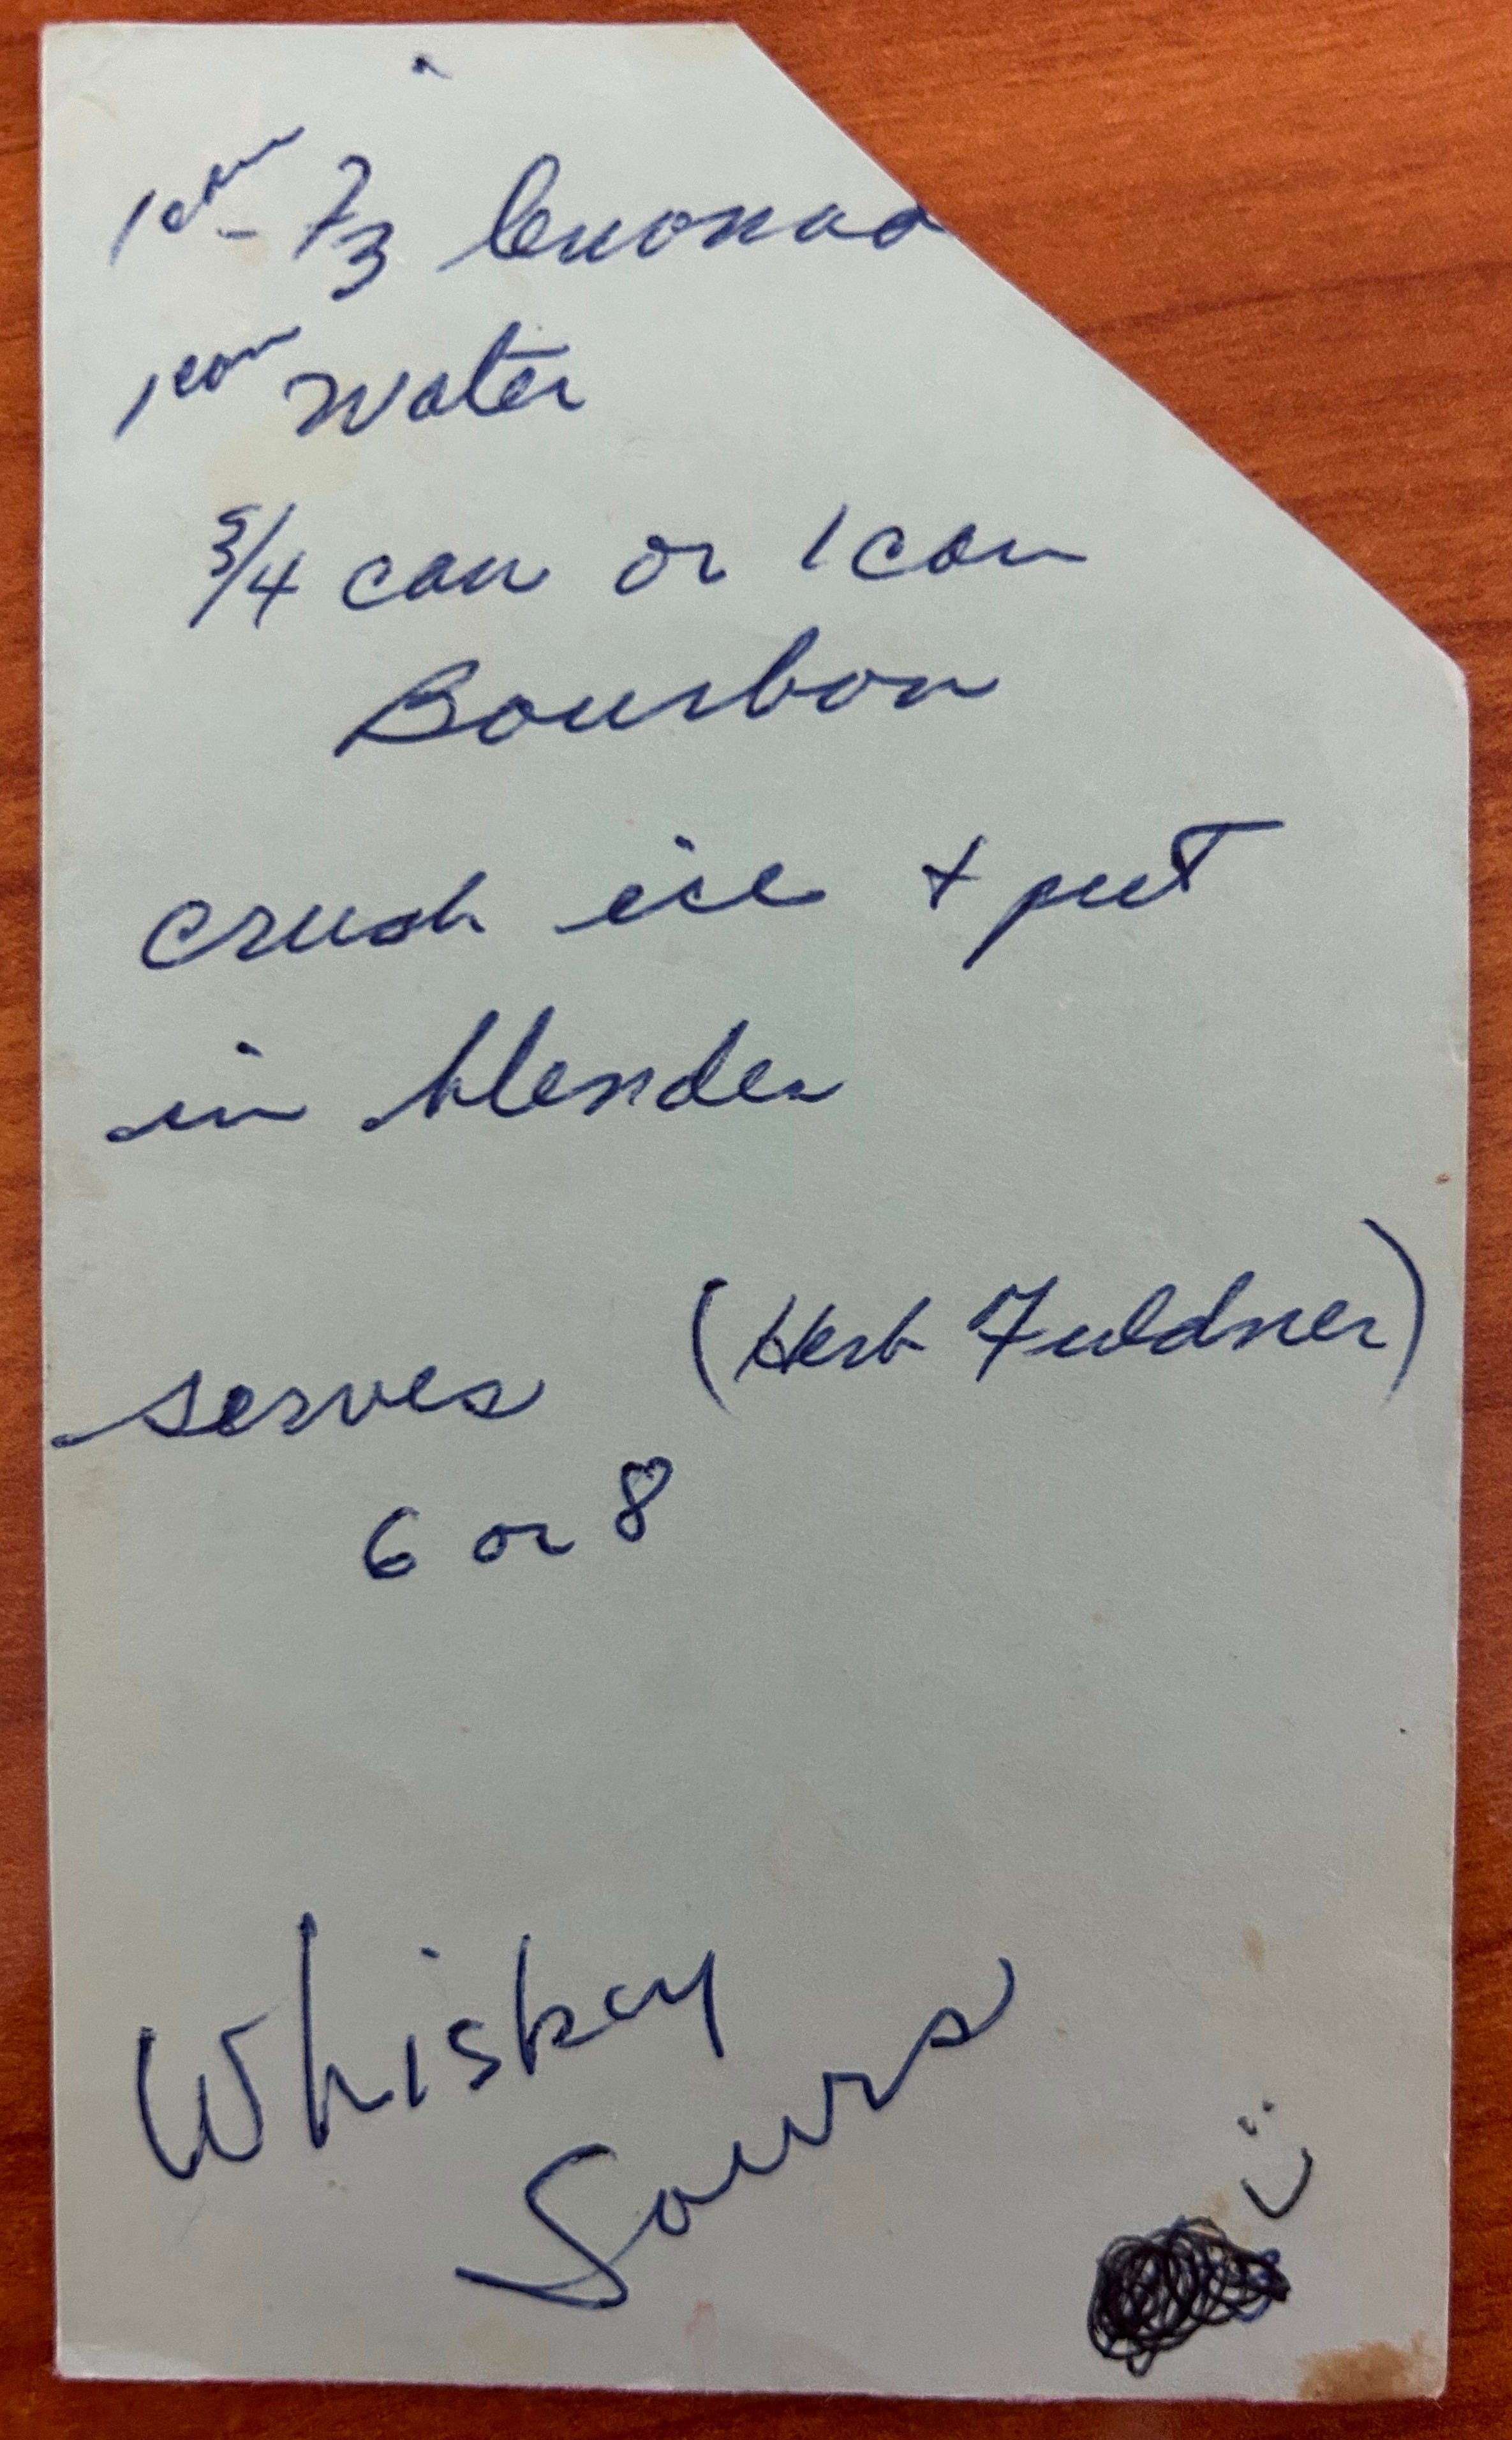 1 can - 2/3 lemonad
1 can water
3/4 can or 1 can
Bourbon
crush ice + put
in blender
(Herb Fuldner)
serves
6 or 8
Whiskey
Sours
:)